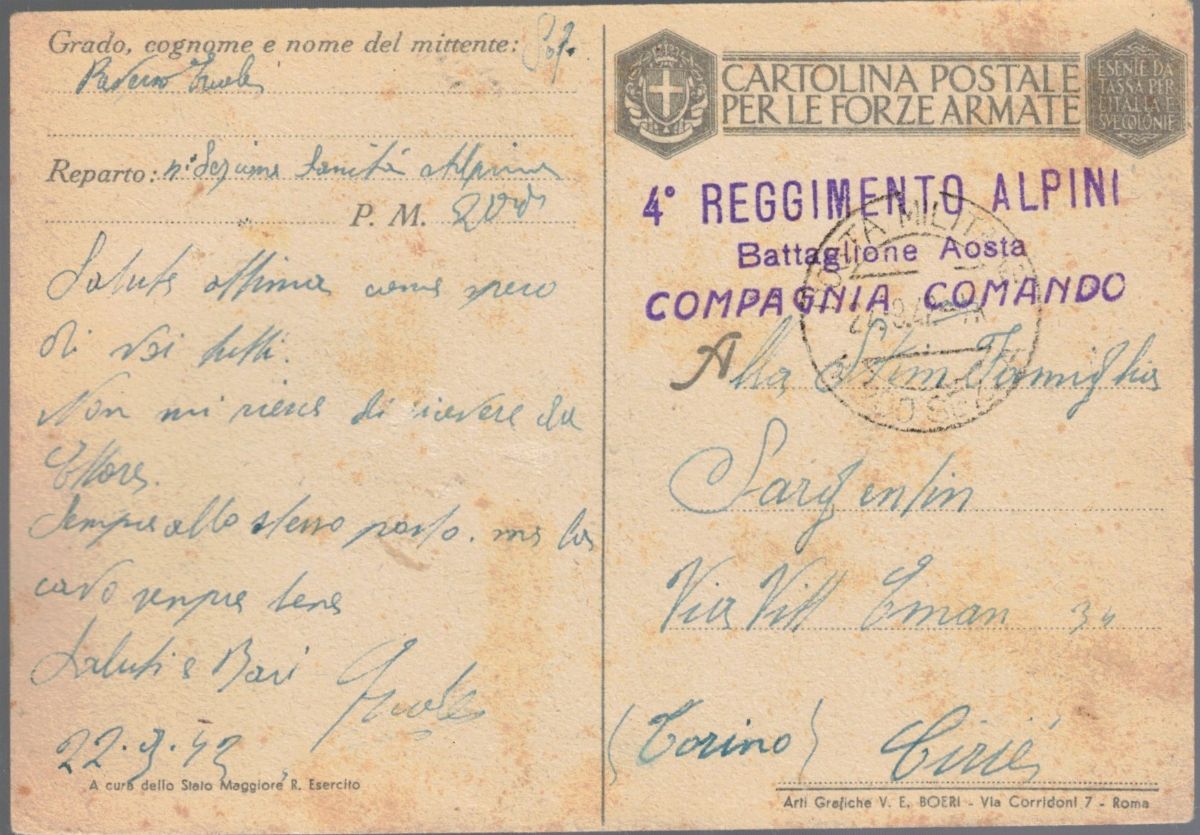 Grado, cognome e nome del mittente:
Reparto: Sezione Sanità Alpina
P. M. 200
Salute ottima come spero
di voi tutti.
Non mi riesce di ricevere da
Ettore.
Sempre allo stesso posto. ma
sempre bene
Saluti e Baci
22.9.42
A cura dello Stato Maggiore R. Esercito
CARTOLINA POSTALE
PER LE FORZE ARMATE
ESENTE DA
TASSA PER
L'ITALIA E
SUE COLONIE
4° REGGIMENTO ALPINI
Battaglione Aosta
COMPAGNIA COMANDO
POSTA MILITARE
Alla Stim Famiglia
Sargentin
Via Vitt Eman 34
(Torino) Cirié
Arti Grafiche V. E. BOERI - Via Corridoni 7 - Roma